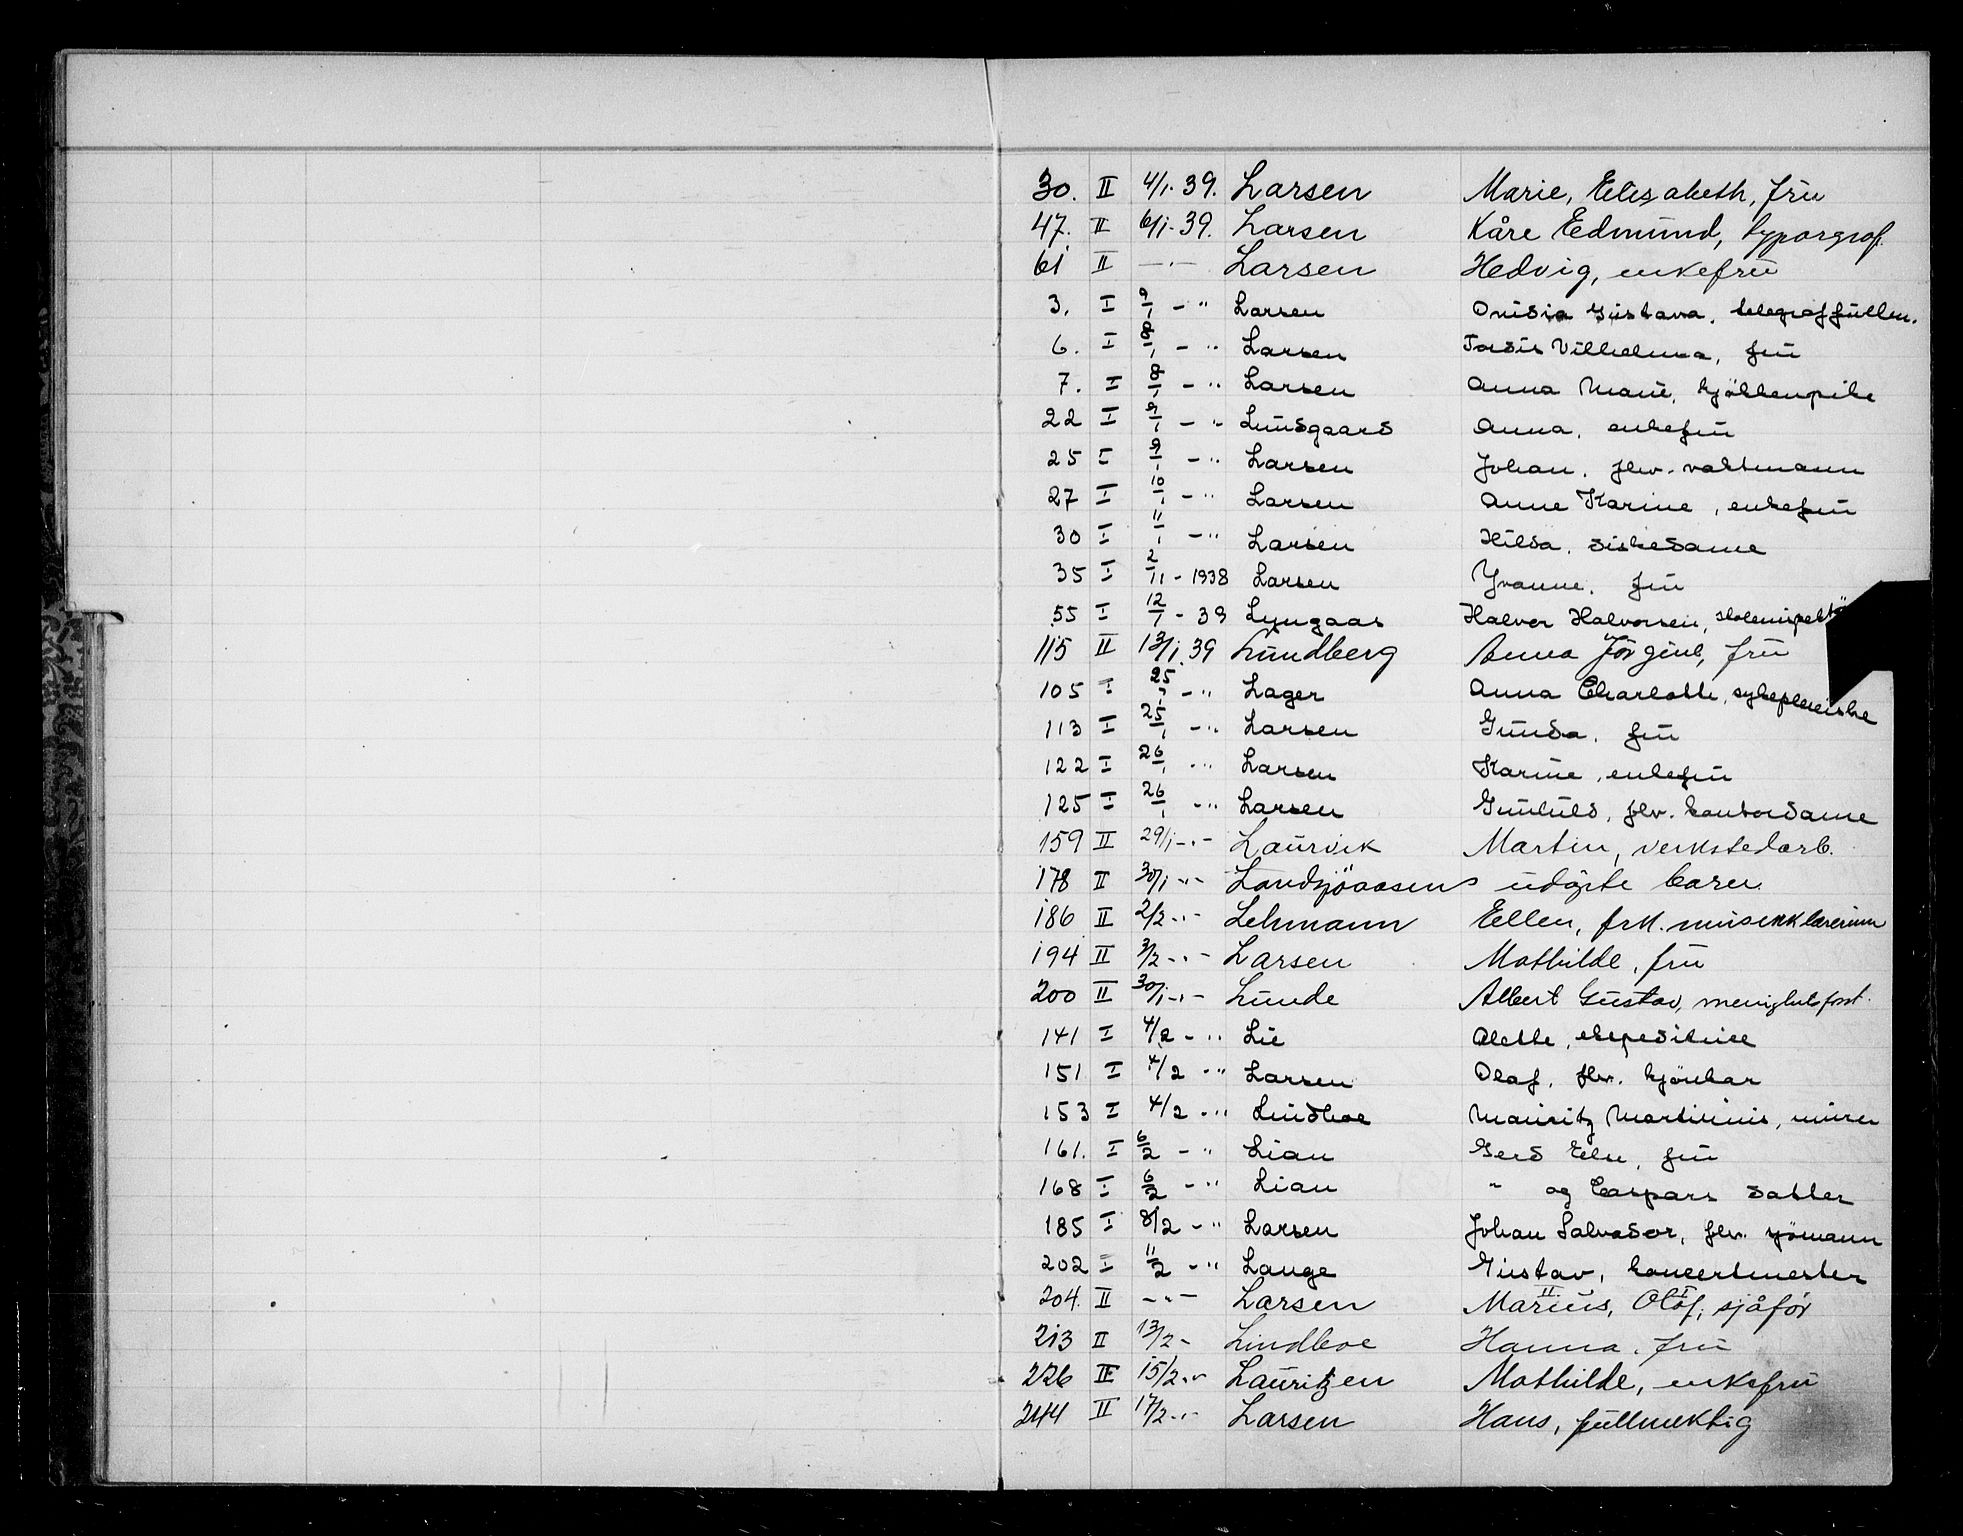 30. II 4/1. 39. Larsen Marie, Elisabeth, frü
47. II 6/1-39. Larsen Kåre Edmünd, typorgraf.
61 II —"— Larsen Hedvig, enkefrü
3. I 9/1 - " Larsen Ovidia Güstava, telegraffüllm.
6. I 8/1 - " Larsen Tordis Vilhelmina, frü
7. I 8/1 - " Larsen Anna Marie, kjökkenpike
22 I 9/1 - " Lündgaard Anna, enkefrü
25 I 9/1 - " Larsen Johan, fhv. vaktmann
27 I 10/1 - " Larsen Anne Karine, enkefrü
30 I 11/1 - " Larsen Hilda, diskedame
35 I 2/11 - 1938 Larsen Yvanne, frü
55 I 12/1 - 39 Lyngaas Halvor Halvorsen, skoleinspektö
115 II 13/1.39 Lündberg Anna Jörgine, frü
105 I 25/1 - " Lager Anna Charlotte, sykepleierske
113 I 25/1 - " Larsen Günda, frü
122 I 26/1 - " Larsen Karine, enkefrü
125 I 26/1 - " Larsen Günhild, fhv. kontordame
159 II 29/1 -"- Laurvik Martin, verkstedarb.
178 II 30/1 -"- Landsjöaasens üdöpte barn.
186 II 2/2 -"- Lehmann Ellen, frk. müsikklærerinn
194 II 3/2 -"- Larsen Mathilde, frü
200 II 30/1 -"- Lünde Albert Güstav, menighetsforst.
141 I 4/2 - " Lie Alette, ekspeditrice
151 I 4/2 - " Larsen Olaf, fhv. kjörekar
153 I 4/2 - " Lindboe Mauritz Martinius, mürer
161. I 6/2 - " Lian Gerd Else, frü
168 I 6/2 - " Lian " og Caspars datter
185 I 8/2 - " Larsen Johan Salvador, fhv. sjömann
202 I 11/2 - " Lange Güstav, koncertmester
204. II -"- Larsen Mariüs, II Olaf, I sjåför
213 II 13/2 - Lindboe Hanna, frü
226 II 15/2 -"- Lauritzen Mathilde, enkefrü
244 II 17/2 -"- Larsen Hans, füllmektig